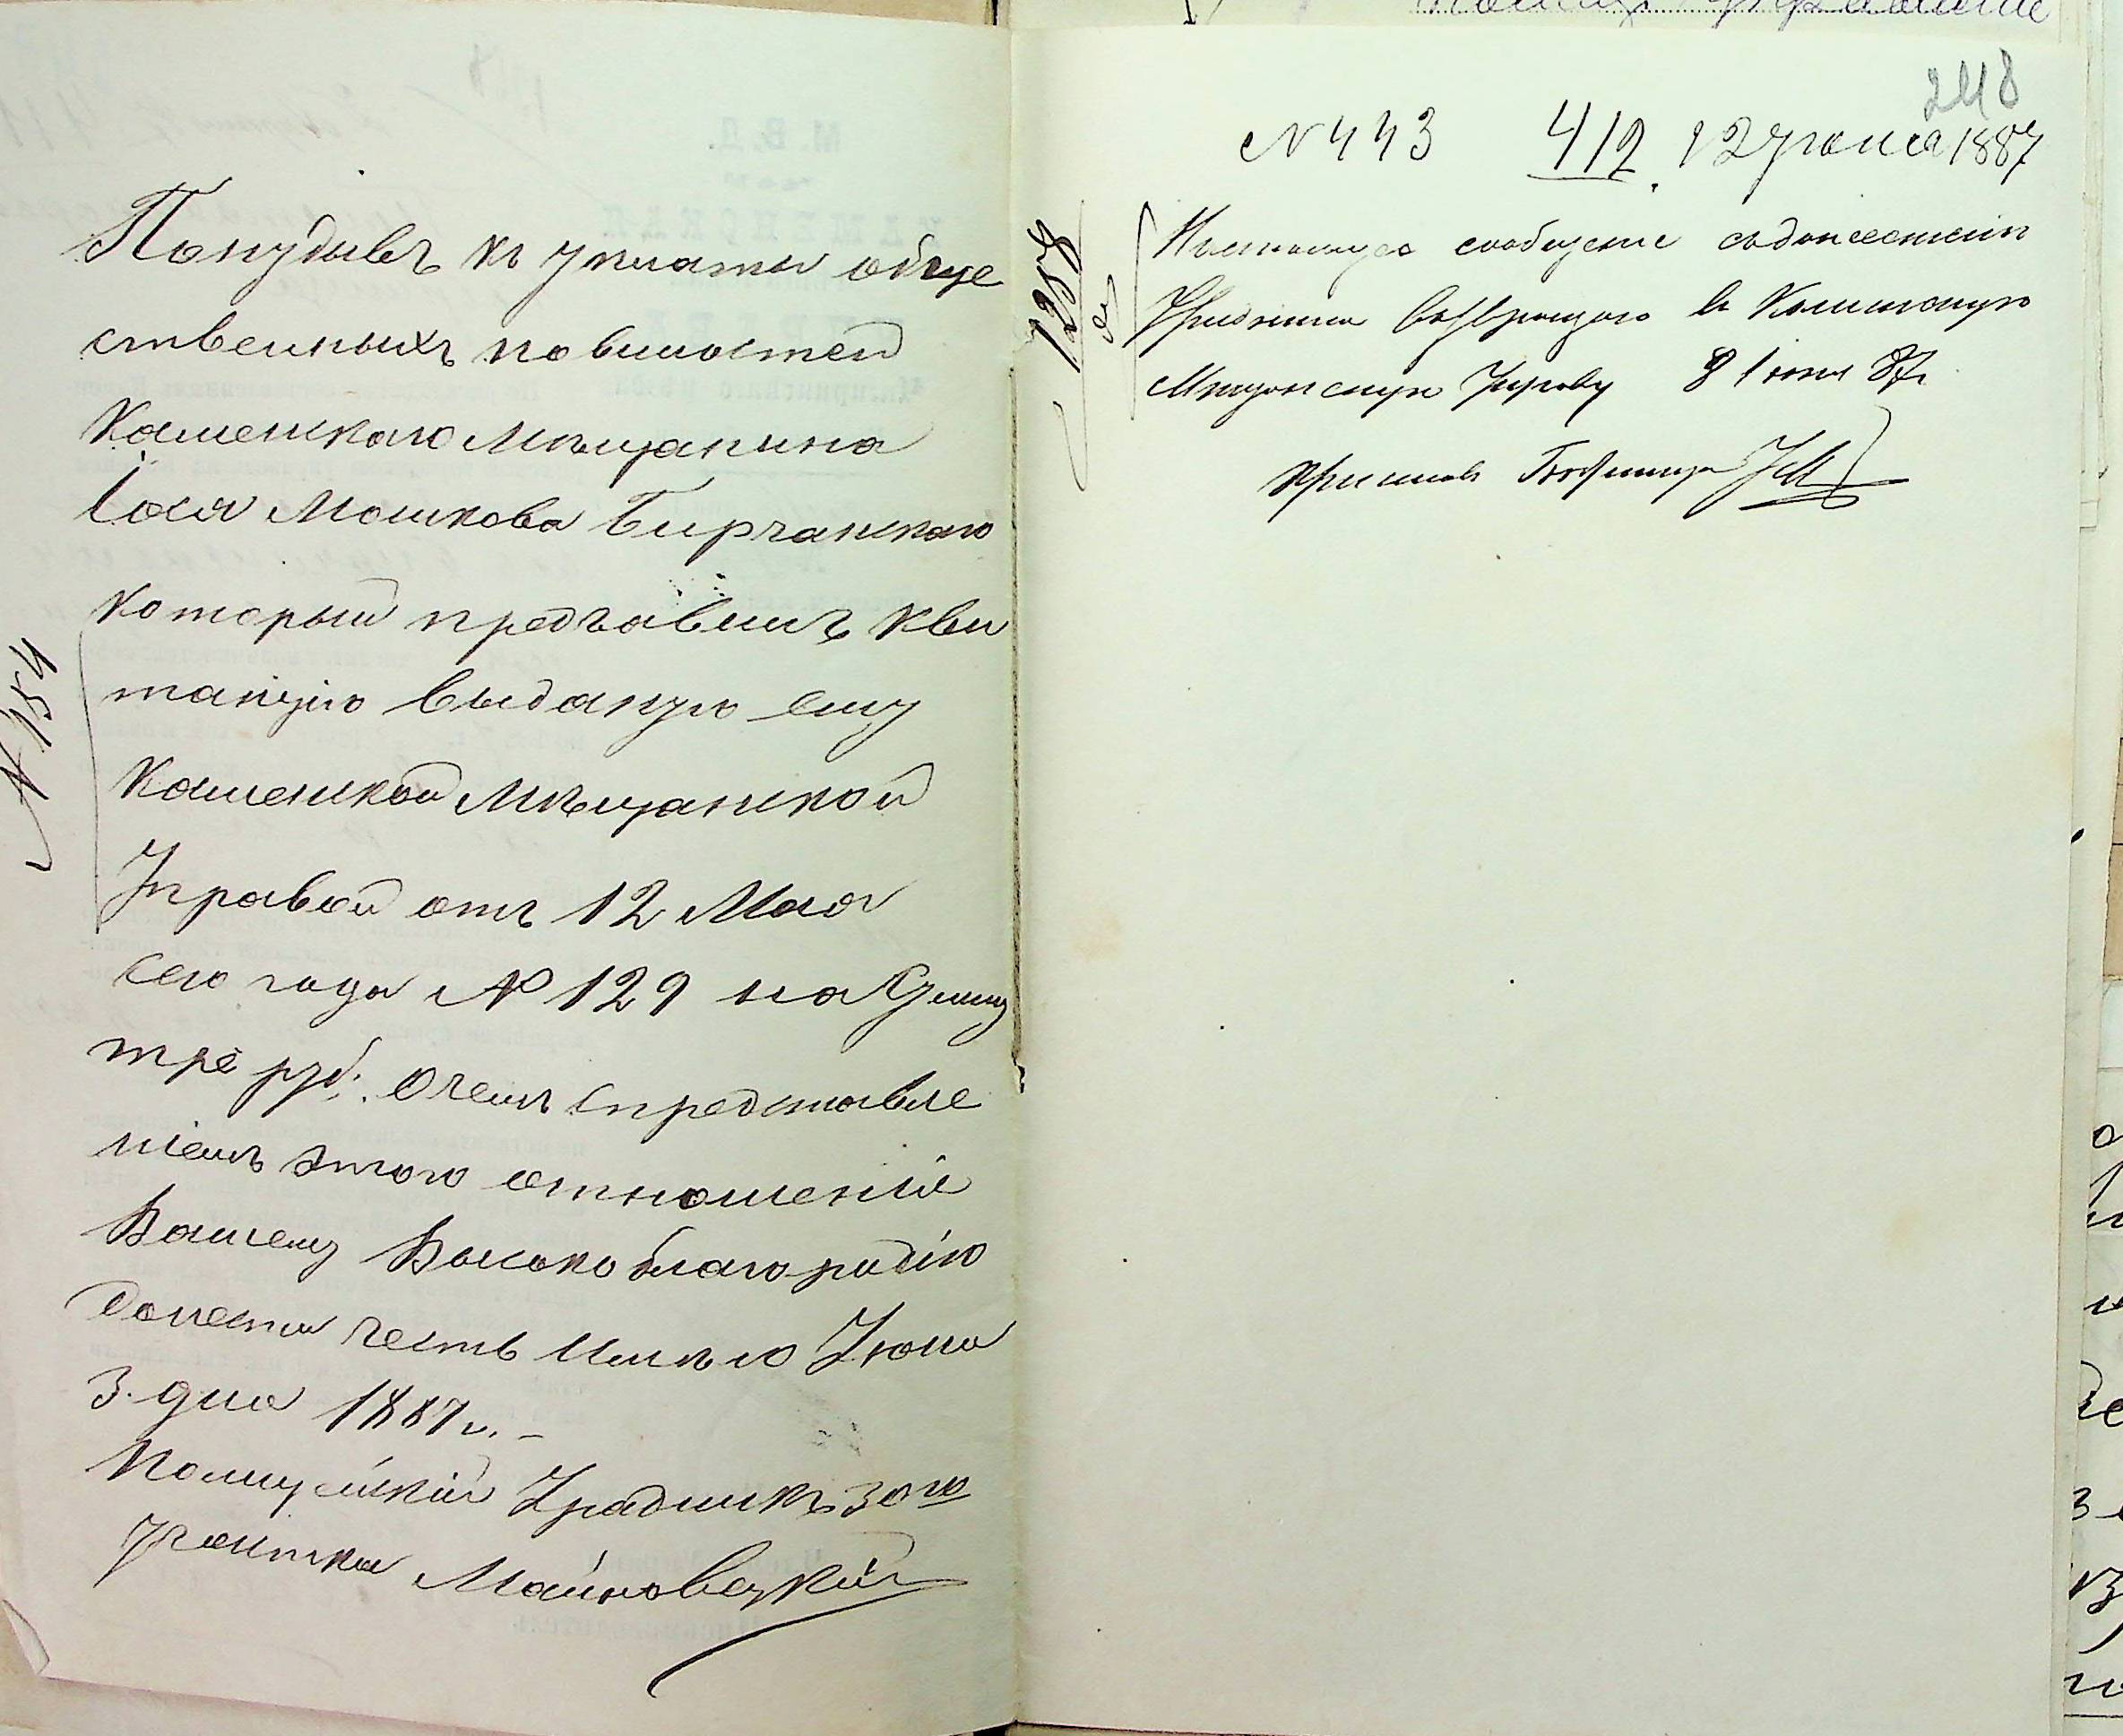 Понудывъ къ уплаты обще
ственныхъ повиностей
Каменскаго Мѣщанина
Іося Мошкова Бирчанскаго
который предъавилъ кви
танцію выданую ему
Каменской Мѣщанской
Управой отъ 12 Мая
сего года № 129 на сумму
тре руб: О чемъ спредставле
ніемъ этого отношенія
Вашему Высокоблагородію
Донести честь имѣю Іюня
3 дня 1887 г. –
Полицейскій Урядникъ 30го
участка
№ 154
248
№ 443 412. 12 Іюня 1887
1258
сообщеніе съдонесеніемъ
Урядника въ Каменскую
Мѣщанскую Управу 8 Іюня 87 г.
Приставъ